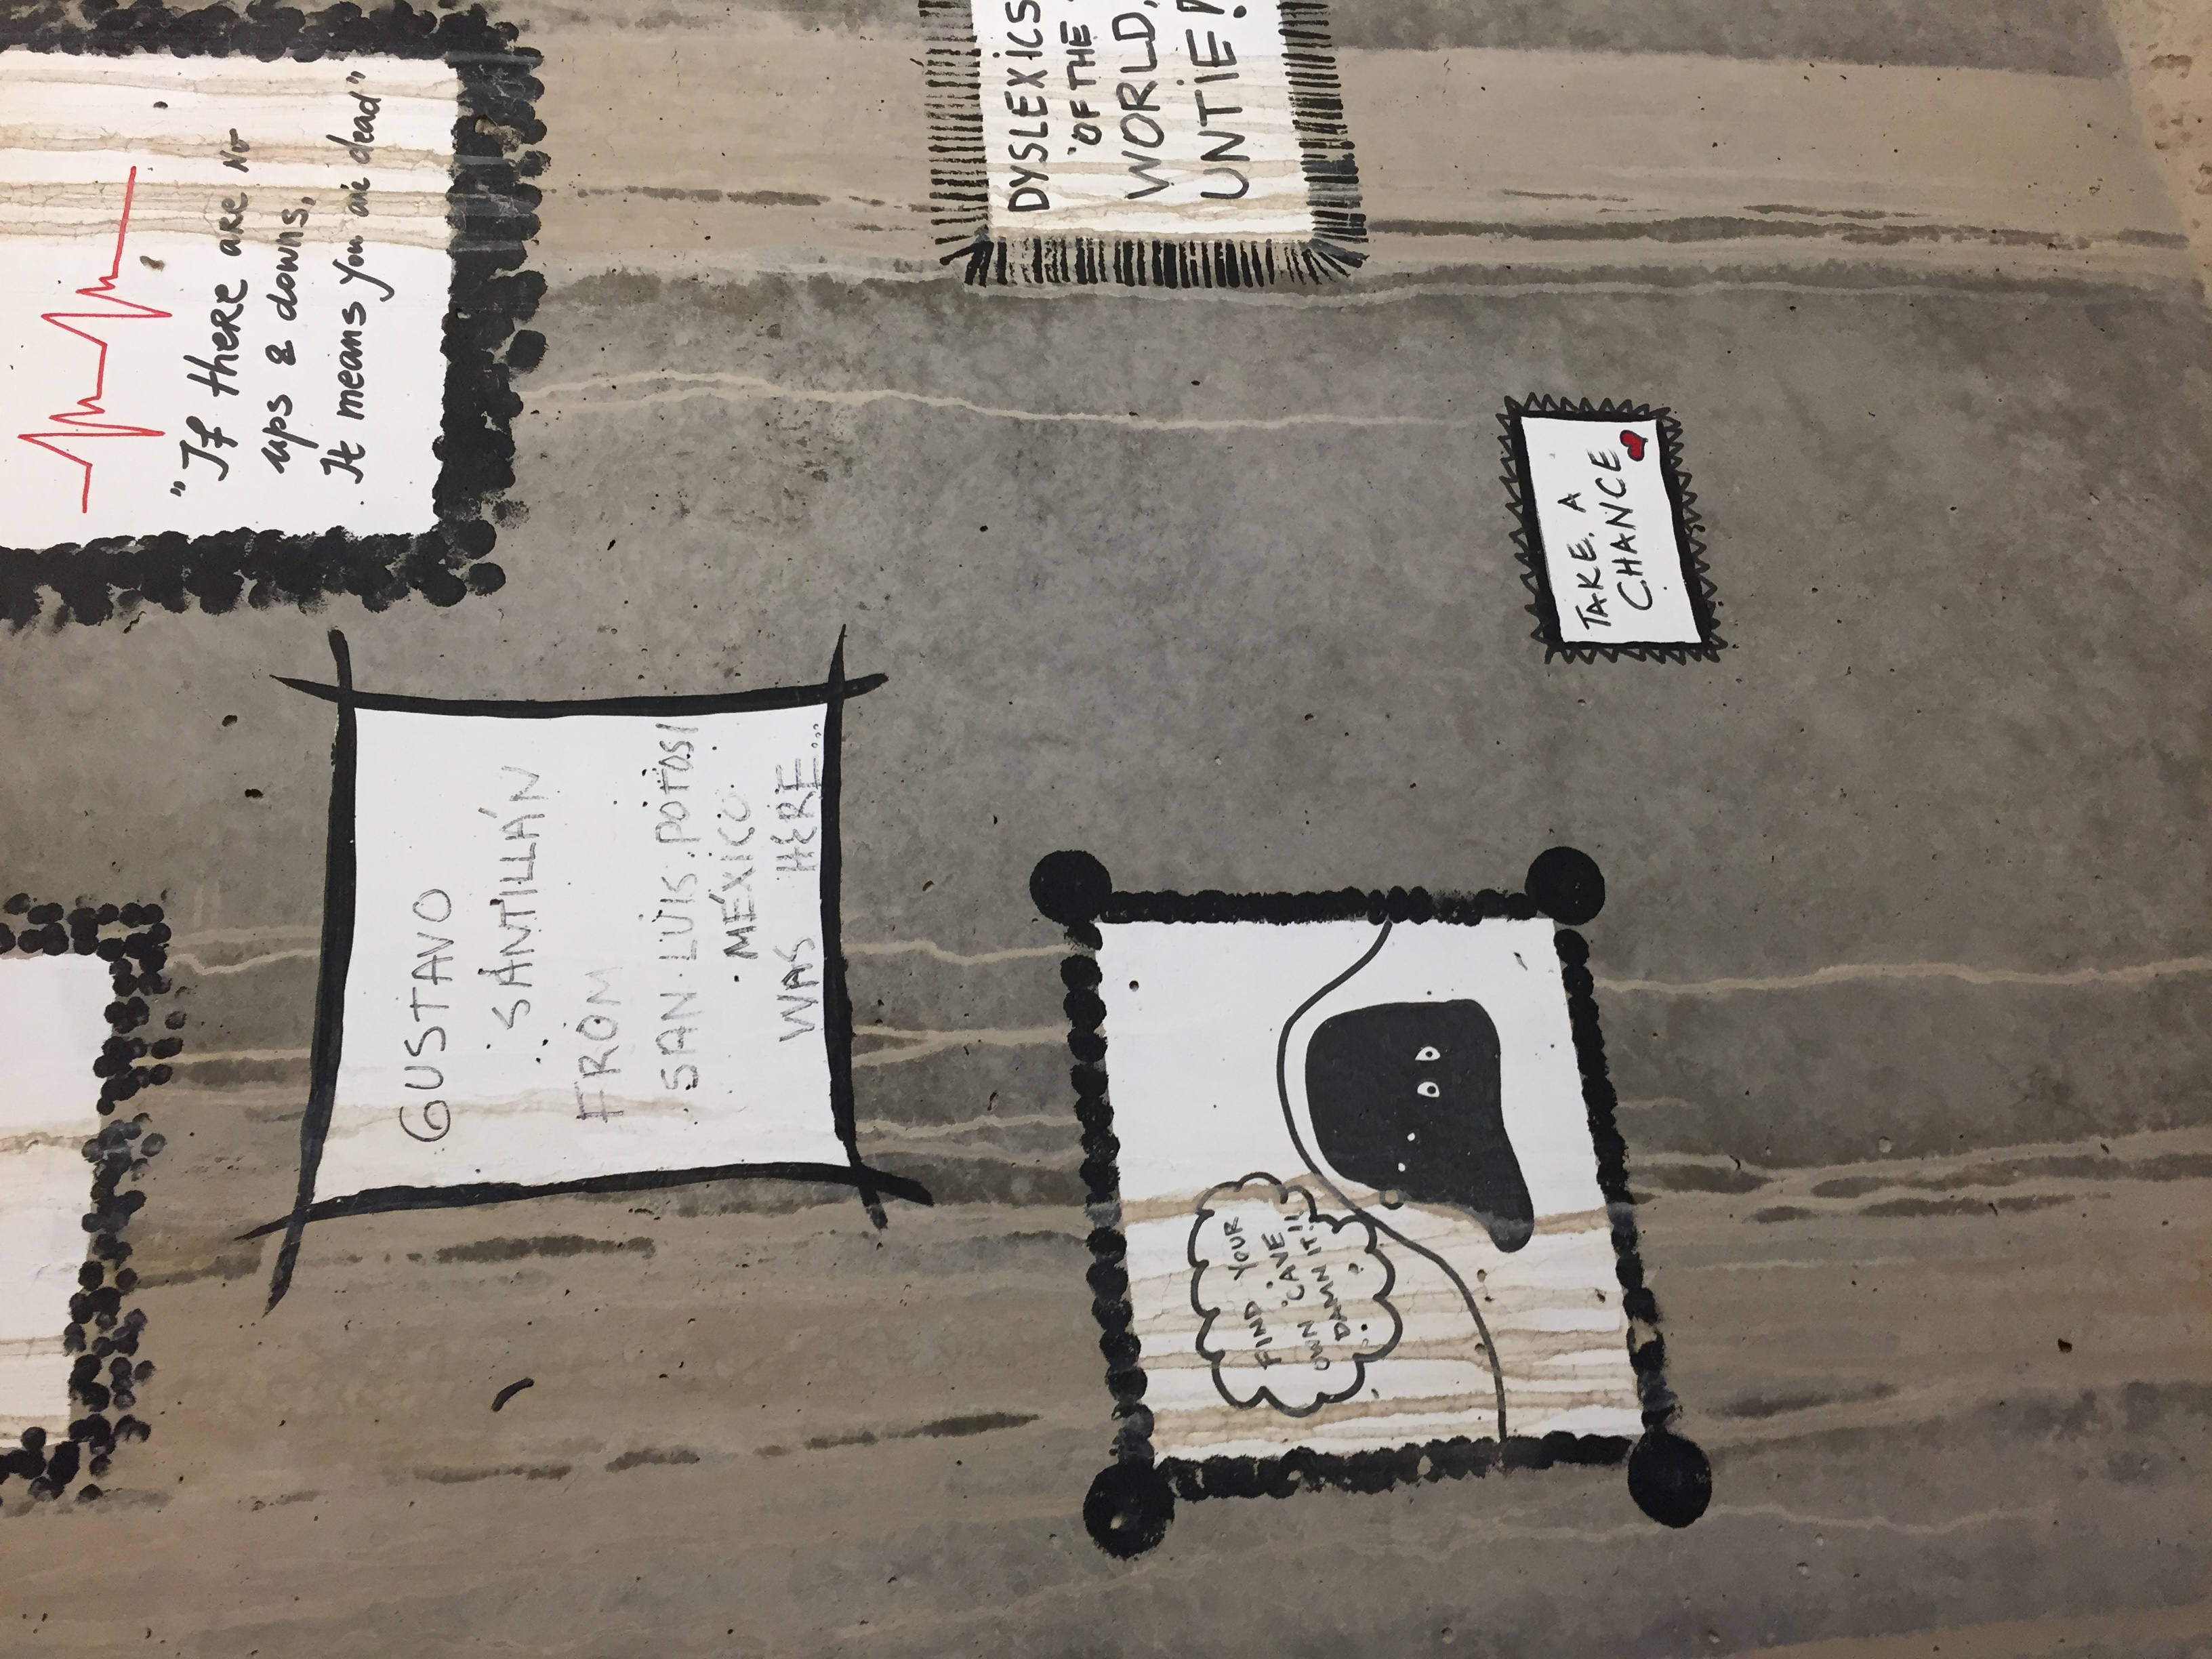 "If there are no
ups & downs,
It means you are dead"
GUSTAVO
SANTILLÁN
FROM
SAN LUIS POTOSI
MÉXICO
WAS HERE...
DYSLEXICS
OF THE
WORLD,
UNTIE!
FIND YOUR
OWN CAVE
DAMN IT!!
TAKE A
CHANCE